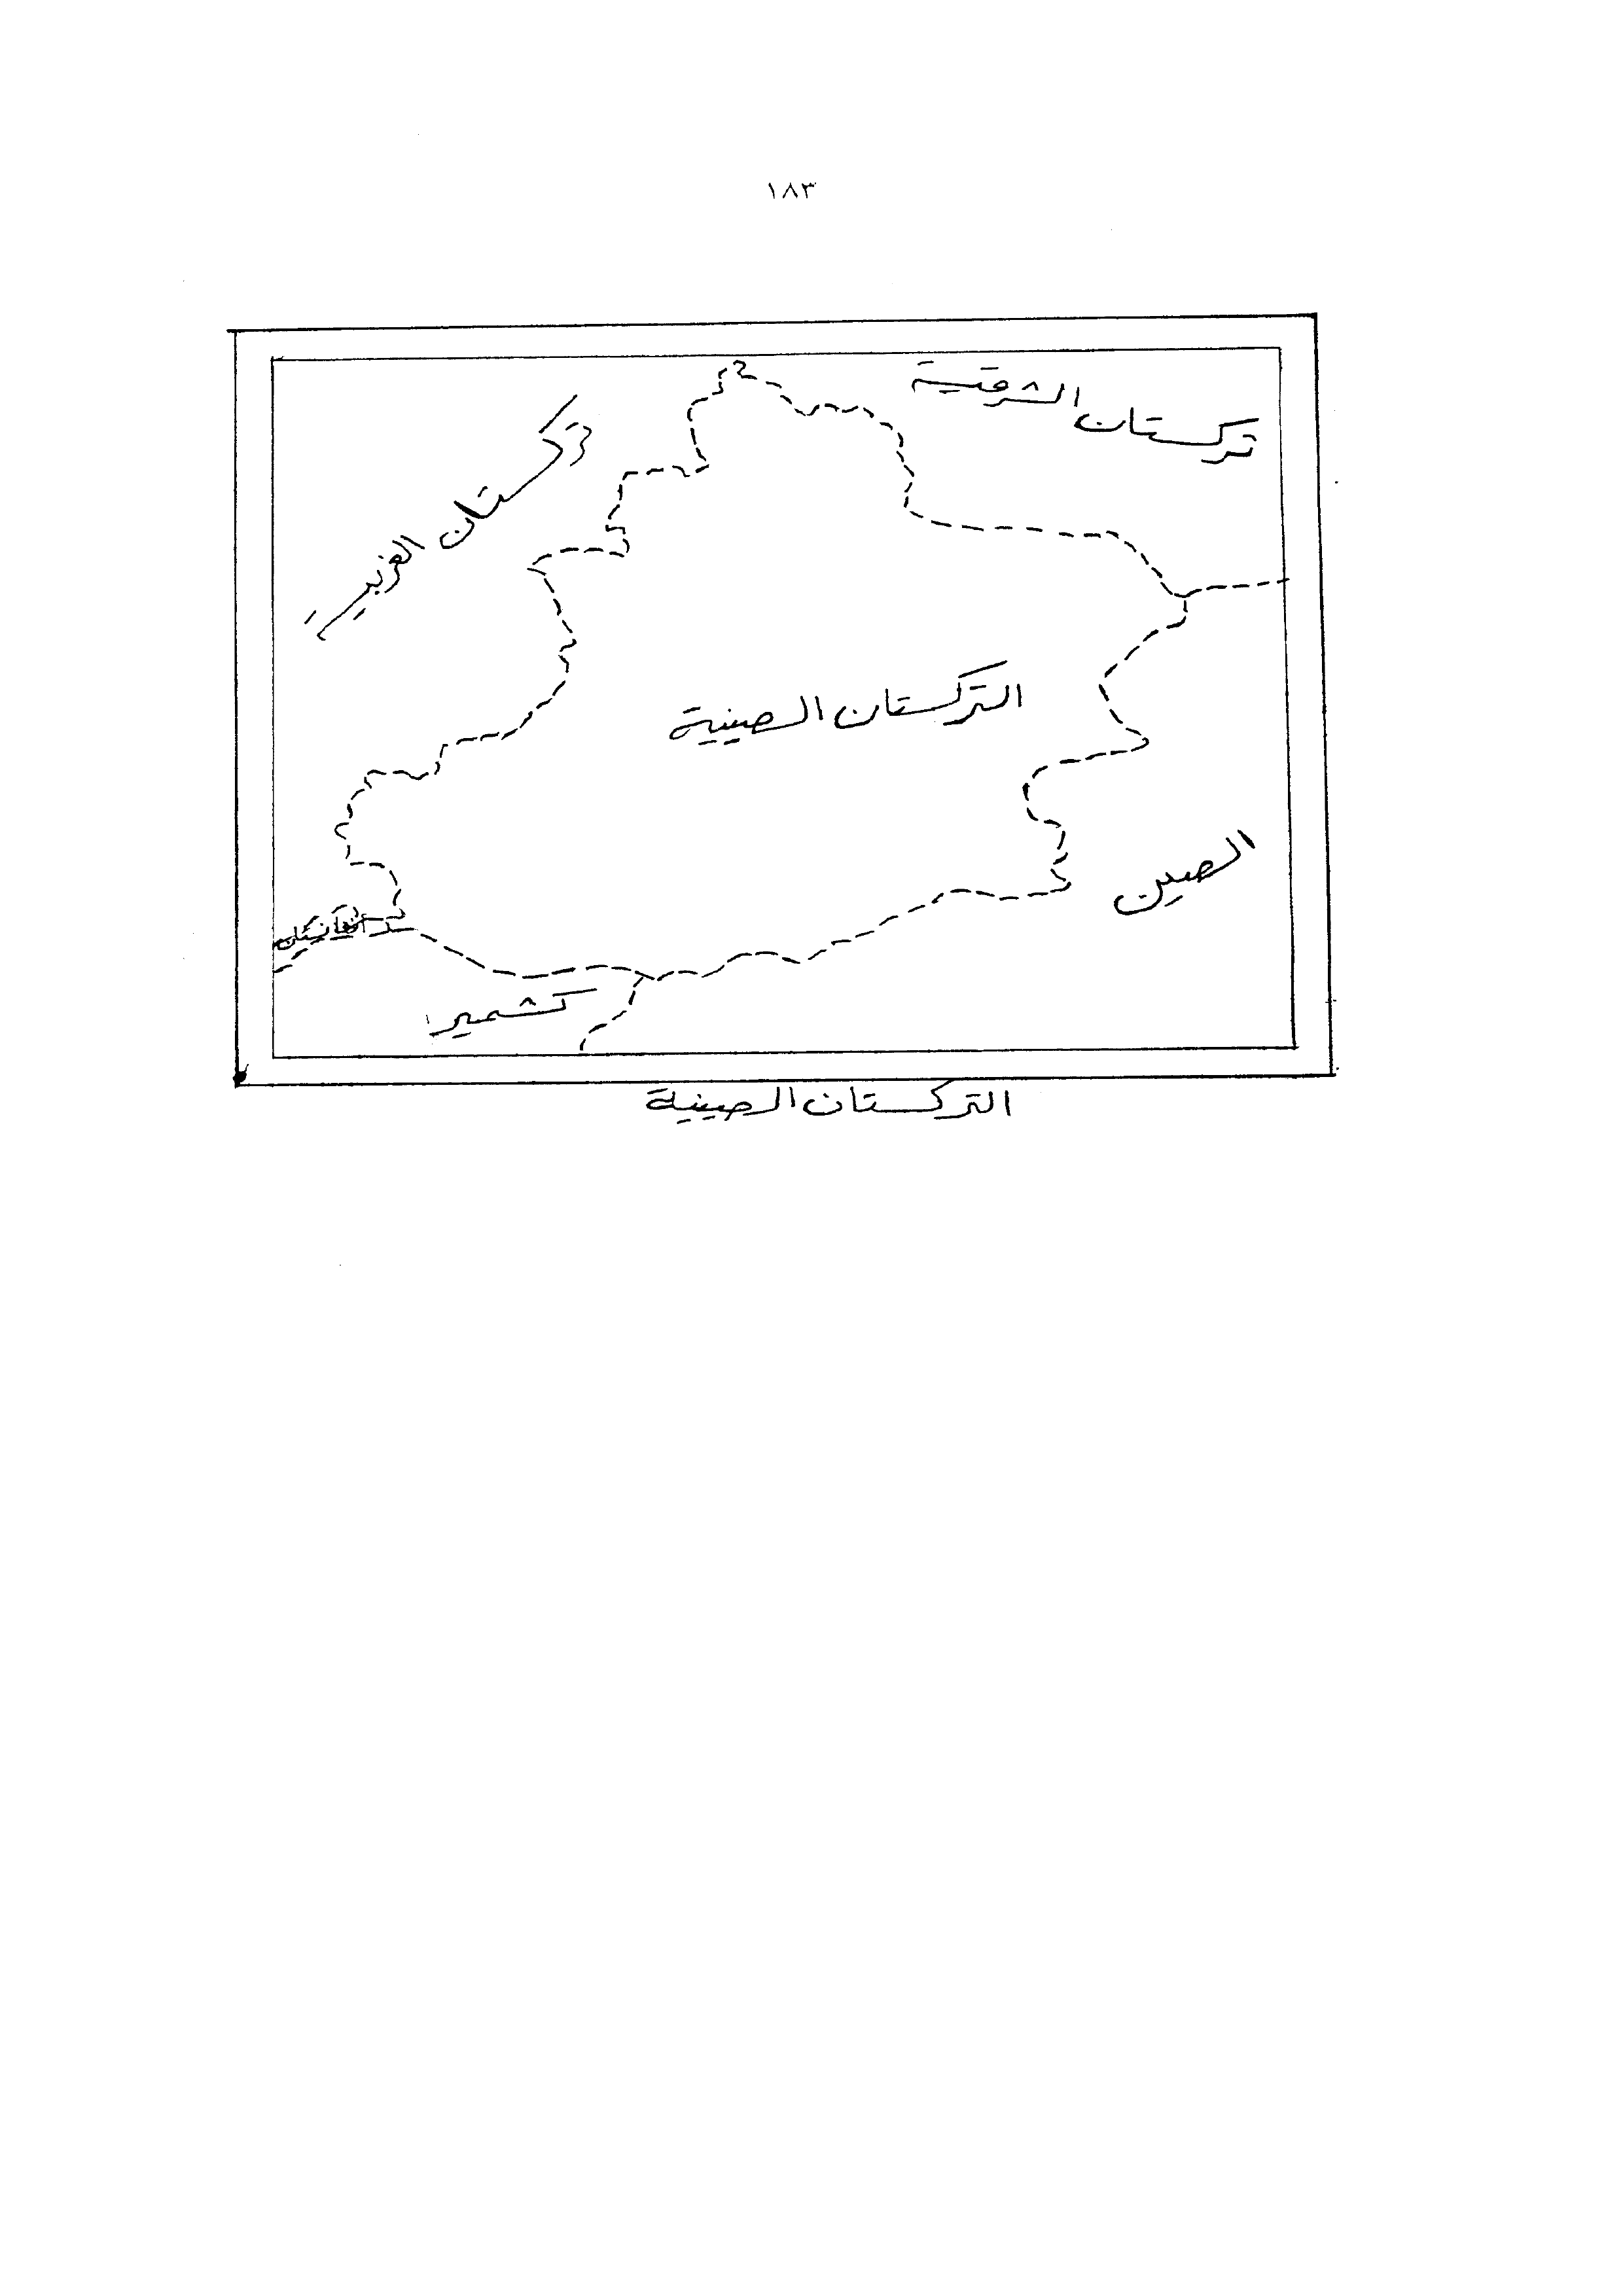 ١٨٣
تركستان الشرقية
تركستان الغربية
التركستان الصينية
الصين
أفغانستان
كشمير
التركستان الصينية